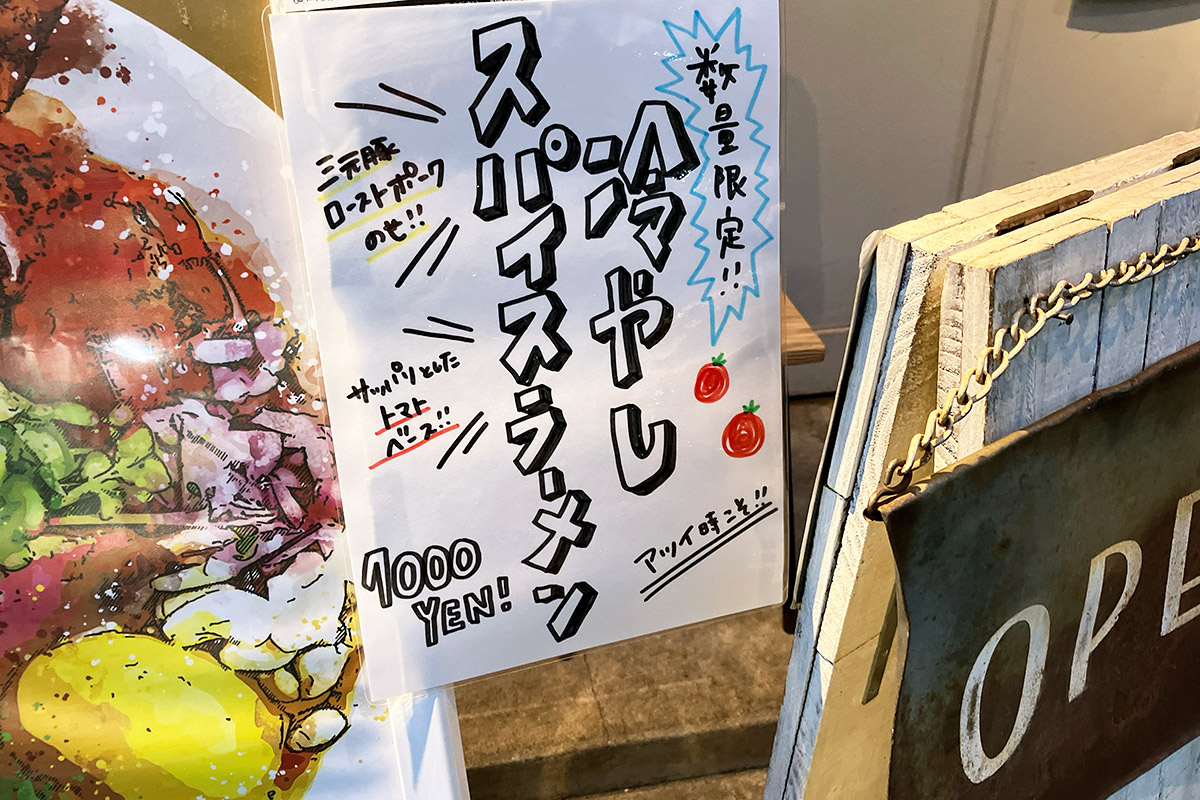 数量限定!!
冷やし
スパイスラーメン
三元豚
ローストポーク
のせ!!
サッパリとした
トマト
ベース!!
アツイ時こそ!!
1000
YEN!
OPE